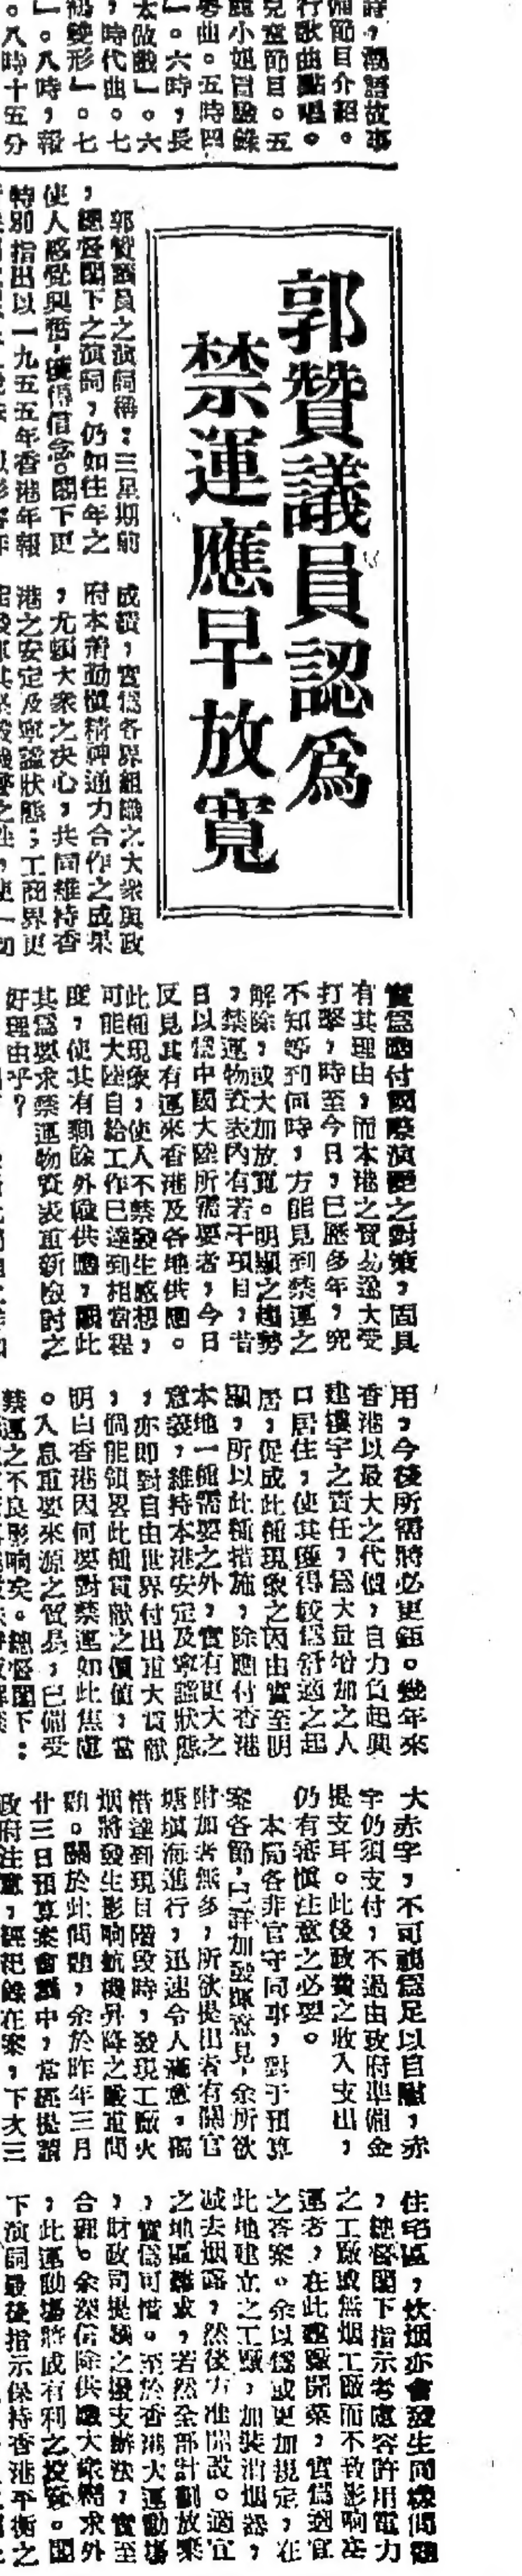 詩，潮語故事
備節目介紹。
行歌曲點唱。
兒童節目。五
小姐
粵曲。五時四
」。六時，長
太做戲」。六
，時代曲。七
變形」。七
」。八時，報
。八時十五分
郭贊議員認爲
禁運應早放寬
郭贊議員之演詞稱：三星期前
，總督閣下之演詞，仍如往年之
使人感覺興奮，獲得信念。閣下更
特別指出以一九五五年香港年報
成績，實爲各界組織之大衆與政
府本着勤愼精神通力合作之成果
，尤賴大衆之決心，共同維持香
港之安定及寧謐狀態；工商界更
實爲應付國際演變之對策，固具
有其理由，而本港之貿易遂大受
打擊，時至今日，已歷多年，究
不知等到何時，方能見到禁運之
解除，或大加放寬。明顯之趨勢
，禁運物資表內有若干項目，昔
日以爲中國大陸所需要者，今日
反見其有運來香港及各地供應。
此種現象，使人不禁發生感想，
可能大陸自給工作已達到相當程
度，使其有剩餘外滙供應，關此
其爲要求禁運物資表重新檢討之
好理由乎？
用，今後所需將必更鉅。幾年來
香港以最大之代價，自力負起興
建樓宇之責任，爲大量增加之人
口居住，使其獲得較爲舒適之起
居，促成此種現象之因由實至明
顯，所以此種措施，除應付香港
本地一種需要之外，實有更大之
意義，維持本港安定及寧謐狀態
，亦即對自由世界付出重大貢獻
，倘能領畧此種貢獻之價值，當
明白香港因何要對禁運如此焦慮
。入息重要來源之貿易，已備受
禁運之不良影响矣。總督閣下：
大赤字，不可視爲足以自慰，赤
字仍須支付，不過由政府準備金
提支耳。此後政費之收入支出，
仍有審愼注意之必要。
本局各非官守同事，對于預算
案各節，已詳加發揮意見，余所欲
附加者無多，所欲提出者有關官
塘塡海進行，迅速令人滿意，獨
惜達到現目階段時，發現工廠火
烟將發生影响航機升降之嚴重問
題。關於此問題，余於昨年三月
廿三日預算案會議中，當經提請
政府注意，經紀錄在案，下次三
住宅區，炊烟亦會發生同樣問題
，總督閣下指示考慮容許用電力
之工廠或無烟工廠而不致影响空
運者，在此建廠開業，實爲適宜
之答案。余以爲或更加規定，在
此地建立之工廠，加裝消烟器，
减去烟霧，然後方准開設。適宜
之地區難求，若然全部計劃放棄
，實爲可惜。至於香港大運動塲
，財政司提議之撥支辦法，實至
合理。余深信除供應大衆需求外
，此運動塲將成有利之投資。閣
下演詞最後指示保持香港平衡之